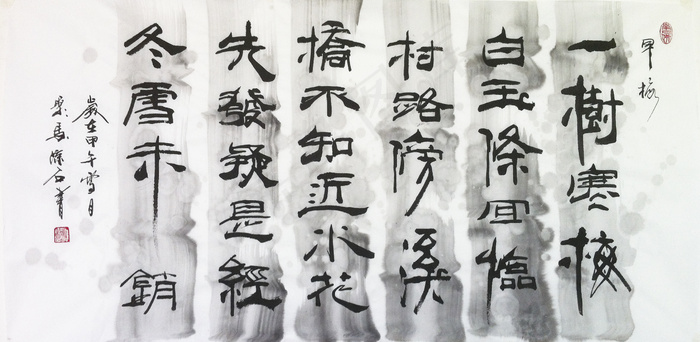 早梅
一樹寒梅
白玉條回臨
村路傍溪
橋不知近水花
先發疑是經
冬雪未銷
歲在甲午雪月
馬石書